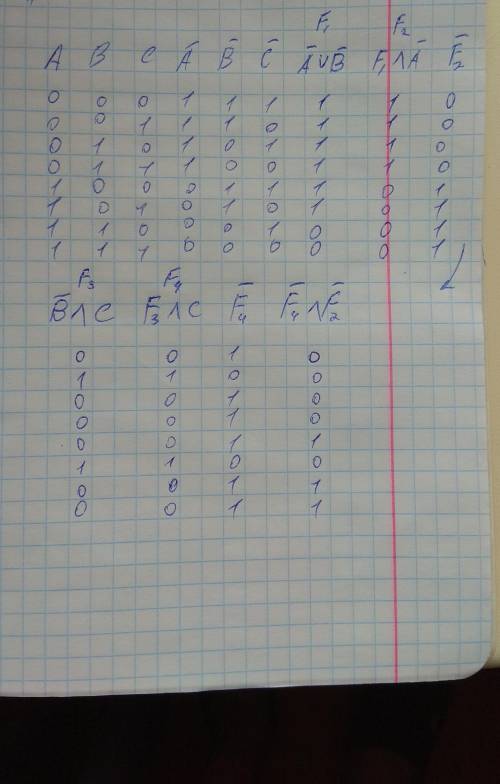 F₁ F₂
A B C Ā B̄ C̄ Ā∨B̄ F₁∧Ā F̄₂
0 0 0 1 1 1 1 1 0
0 0 1 1 1 0 1 1 0
0 1 0 1 0 1 1 1 0
0 1 1 1 0 0 1 1 0
1 0 0 0 1 1 1 0 1
1 0 1 0 1 0 1 0 1
1 1 0 0 0 1 0 0 1
1 1 1 0 0 0 0 0 1
F₃ F₄
B̄∧C F₃∧C F̄₄ F̄₄∧F̄₂
0 0 1 0
1 1 0 0
0 0 1 0
0 0 1 0
0 0 1 1
1 1 0 0
0 0 1 1
0 0 1 1